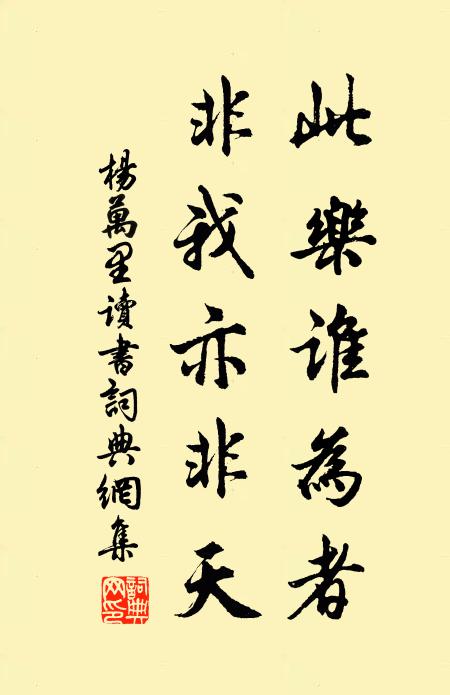 此樂誰為者
非我亦非天
楊萬里讀書詞典網集
詞典網印